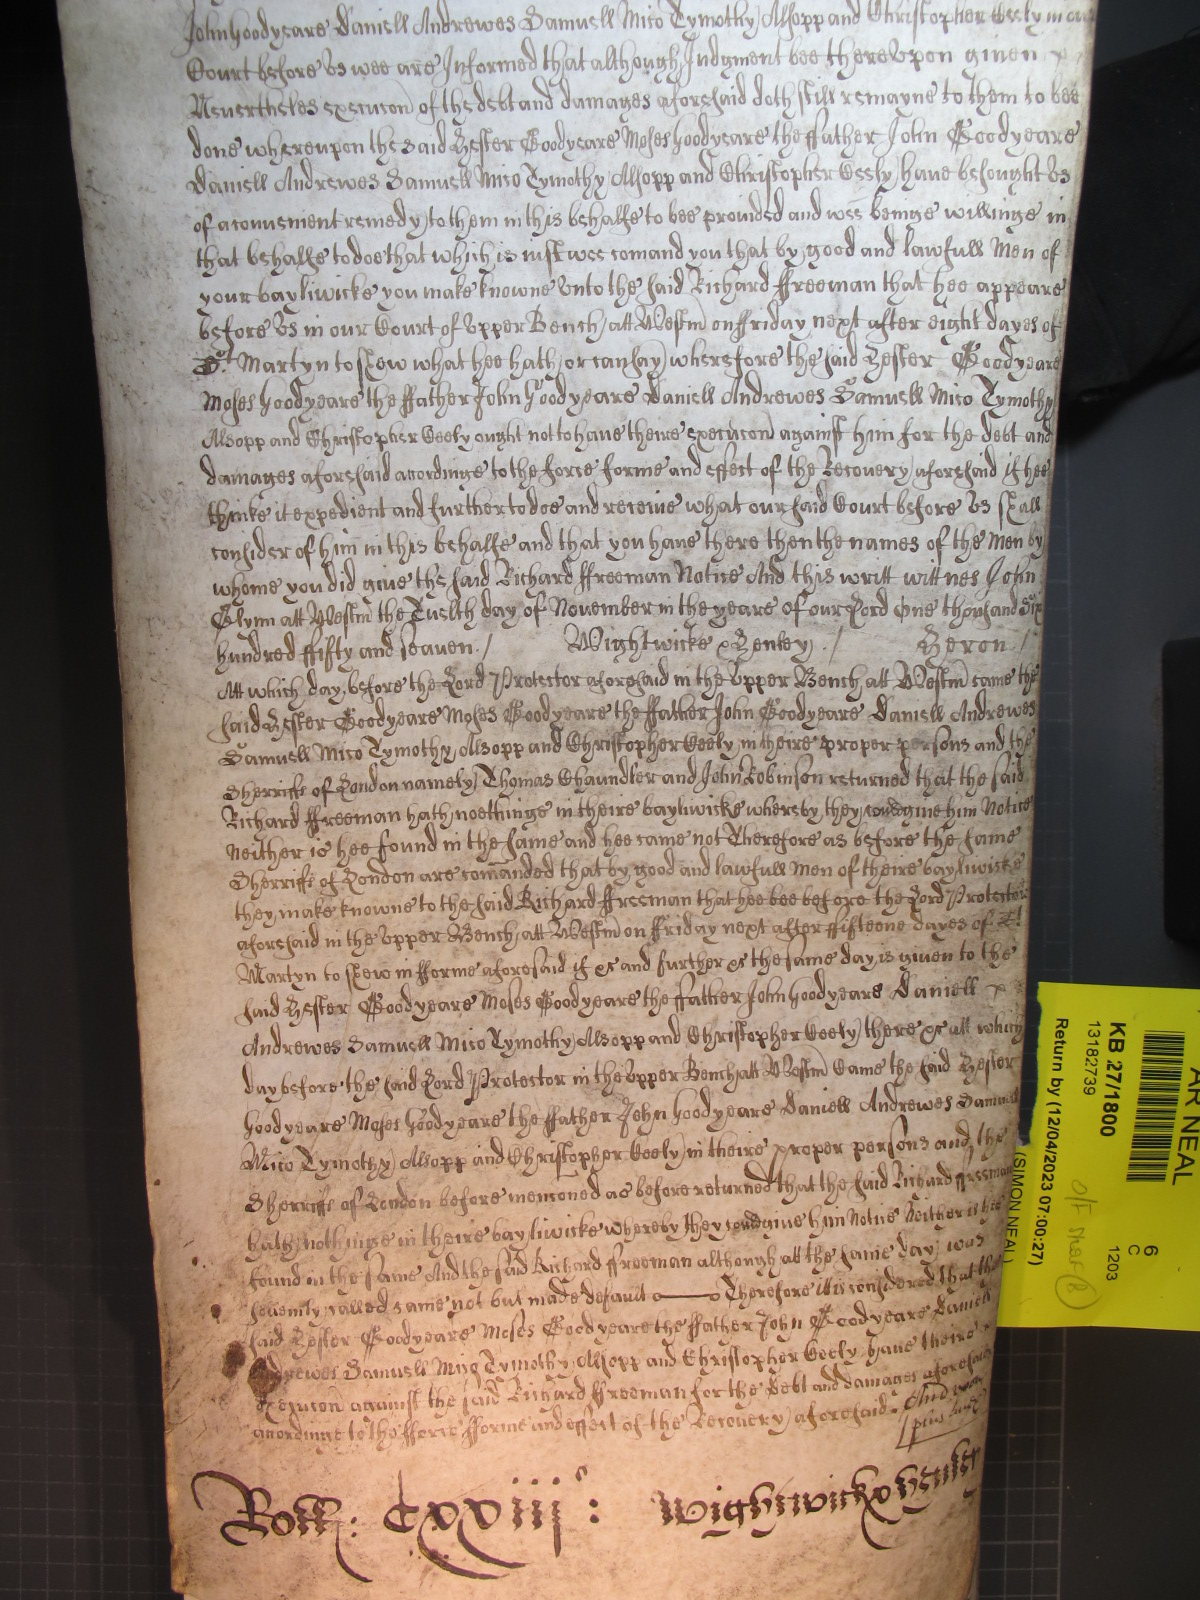 John Goodyeare Daniell Andrewes Samuell Mico Tymothy Alsopp and Christopher Geely in our
Court before Us wee are Informed that although Judgment bee thereupon given
Neverthelesse execucon of the debt and damages aforesaid doth still remayne to them to bee
done whereupon the said Hester Goodyeare Moses Goodyeare the ffather John Goodyeare
Daniell Andrewes Samuell Mico Tymothy Alsopp and Christopher Geely have besought Us
of a convenient remedy to them in this behalfe to bee provided and wee beinge willinge in
that behalfe to doe that which is iust wee comand you that by good and lawfull Men of
your bayliwicke you make knowne unto the said Richard ffreeman that hee appeare
before Us in our Court of Upper Bench att Westm on ffriday next after eight dayes of
St Martyn to shew what hee hath or can say wherefore the said Hester Goodyeare
Moses Goodyeare the ffather John Goodyeare Daniell Andrewes Samuell Mico Tymothy
Alsopp and Christopher Geely ought not to have theire execucon against him for the debt and
damages aforesaid accordinge to the force forme and effect of the Recovery aforesaid if hee
thinke it expedient and further to doe and receive what our said Court before Us shall
consider of him in this behalfe and that you have there then the names of the Men by
whome you did give the said Richard ffreeman Notice And this writt wittnes John
Glynn att Westm the Twelth day of November in the yeare of our Lord One thousand Six
hundred ffifty and seaven / Wightwicke & Henley / Heron /
Att which day before the Lord Protector aforesaid in the Upper Bench att Westm came the
said Hester Goodyeare Moses Goodyeare the ffather John Goodyeare Daniell Andrewes
Samuell Mico Tymothy Alsopp and Christopher Geely in theire proper persons and the
Sherriffs of London namely Thomas Chaundler and John Robinson returned that the said
Richard ffreeman hath noethinge in theire bayliwicke whereby they could give him Notice
Neither is hee found in the same and hee came not Therefore as before the same
Sherriffs of London are comanded that by good and lawfull Men of theire bayliwicke
they make knowne to the said Richard ffreeman that hee bee before the Lord Protector
aforesaid in the Upper Bench att Westm on ffriday next after fifteene dayes of St
Martyn to shew in fforme aforesaid if &c and further &c the same day is given to the
said Hester Goodyeare Moses Goodyeare the ffather John Goodyeare Daniell
Andrewes Samuell Mico Tymothy Alsopp and Christopher Geely there &c att which
day before the said Lord Protector in the Upper Bench att Westm Came the said Hester
Goodyeare Moses Goodyeare the ffather John Goodyeare Daniell Andrewes Samuell
Mico Tymothy Alsopp and Christopher Geely in theire proper persons and the
Sherriffs of London before mencioned as before returned that the said Richard ffreeman
hath nothinge in theire bayliwicke whereby they could give him Notice Neither is hee
found in the same And the said Richard ffreeman although att the same day was
solemnly called came not but made default Therefore itt is considered that the
said Hester Goodyeare Moses Goodyeare the ffather John Goodyeare Daniell
Andrewes Samuell Mico Tymothy Alsopp and Christopher Geely have theire
Execucon against the said Richard ffreeman for the Debt and damages aforesaid
accordinge to the fforce fforme and effect of the Recovery aforesaid
Roll: Cxxiij: Wightwick & Henley
AR NEAL
6
C
1203
KB 27/1800
13182739
Return by (12/04/2023 07:00:27)
(SIMON NEAL)